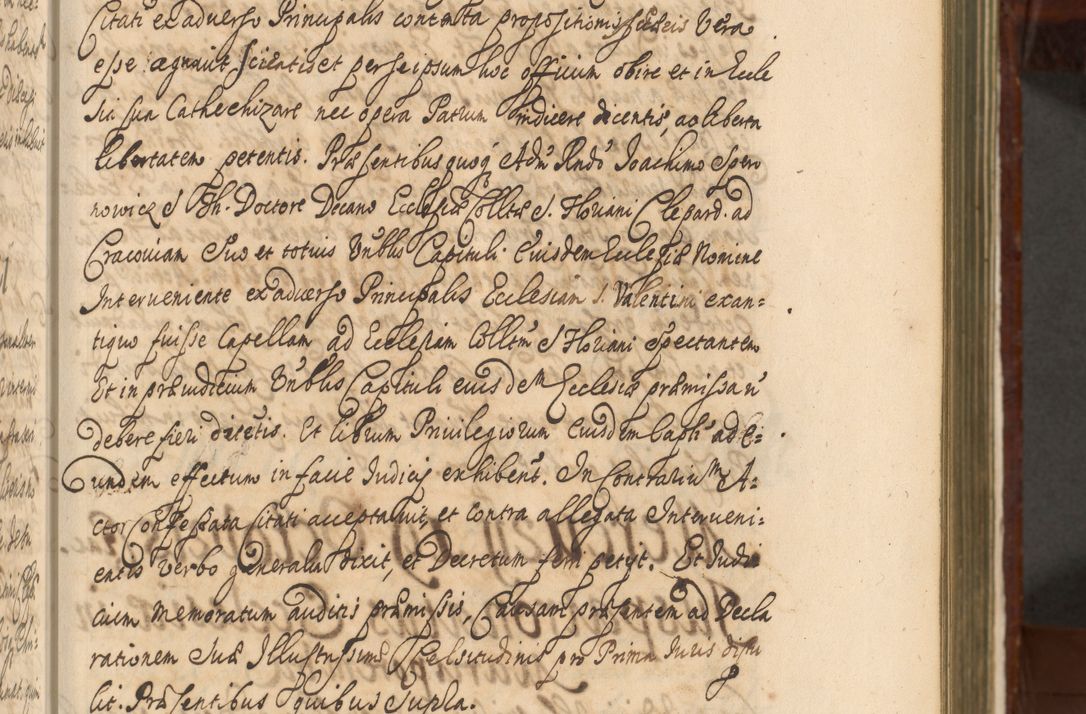 Citati ex adverso Principalis contenta propositionis suæ Vera
esse agnovit Scientis et per se ipsum hoc officium obire et in Eccle
sia sua Cathechizare nec opera Patrum indicere dicentis, ac liberta
libertatem petentis. Præsentibus quoq Adm Rndo Joachimo Spero
nowicz S Th. Doctore Decano Ecclesiæ Colltæ S. Floriani Clepard. ad
Cracoviam Suo et totius Vnblis Capituli Eiusdem Ecclesiæ Nomine
Interveniente ex adverso Principalis Ecclesiam S. Valentini exan=
tiquo fuisse Capellam ad Ecclesiam Colltm S Floriani Spectantem
Et in præiudicium Vnblis Capituli eiusdem Ecclesiæ præmissa n
debere fieri dicentis. Et librum Privilegiorum Eiusdem Capli ad E=
undem effectum in facie Iudicij exhibent. In Contrarium A=
ctor Confessata Citati acceptavit, et contra allegata Interveni=
entis verbo generalia dixit, et Decretum ferri petyt. Et Iudi
cium memoratum auditis præmissis, Causam præsentem ad Decla
rationem Suæ Illustrissimæ Celsitudinis pro Prima Iuris distu
lit. Præsentibus quibus Supla.